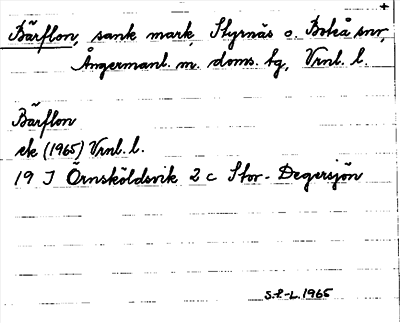 +
Bärflon, sank mark, Styrnäs o. Boteå snr,
Ångermanl. m. doms. fg, Vrnl. l.
Bärflon
ek (1965) Vrnl. l.
19 J Örnsköldsvik 2 c Stor-Degersjön
S.F.-L. 1965